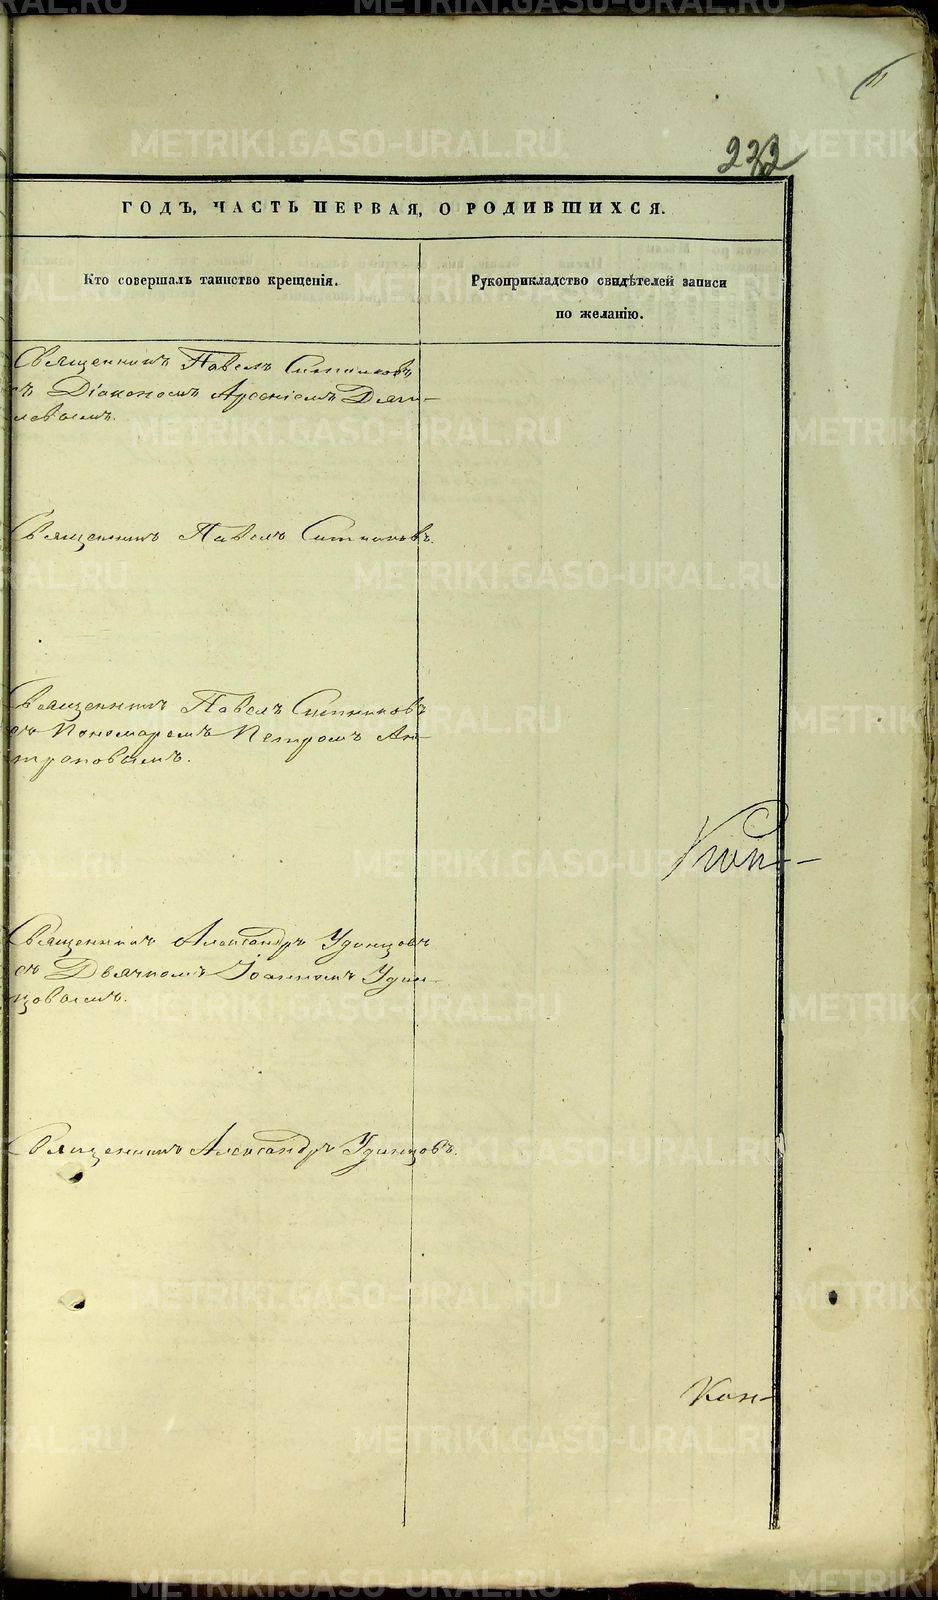 11
222
ГОДЪ, ЧАСТЬ ПЕРВАЯ, О РОДИВШИХСЯ.
Кто совершалъ таинство крещенія.
Рукоприкладство свидѣтелей записи
по желанію.
Священникъ Павелъ Ситниковъ
съ Діакономъ Арсеніемъ Дяги-
левымъ.
Священникъ Павелъ Ситниковъ.
Священникъ Павелъ Ситниковъ
съ Пономаремъ Петромъ Ан-
троповымъ.
Священникъ Александръ Удинцовъ
съ Дьячкомъ Іоанномъ Удин-
цовымъ.
Священникъ Александръ Удинцовъ.
Кон-
METRIKI.GASO-URAL.RU